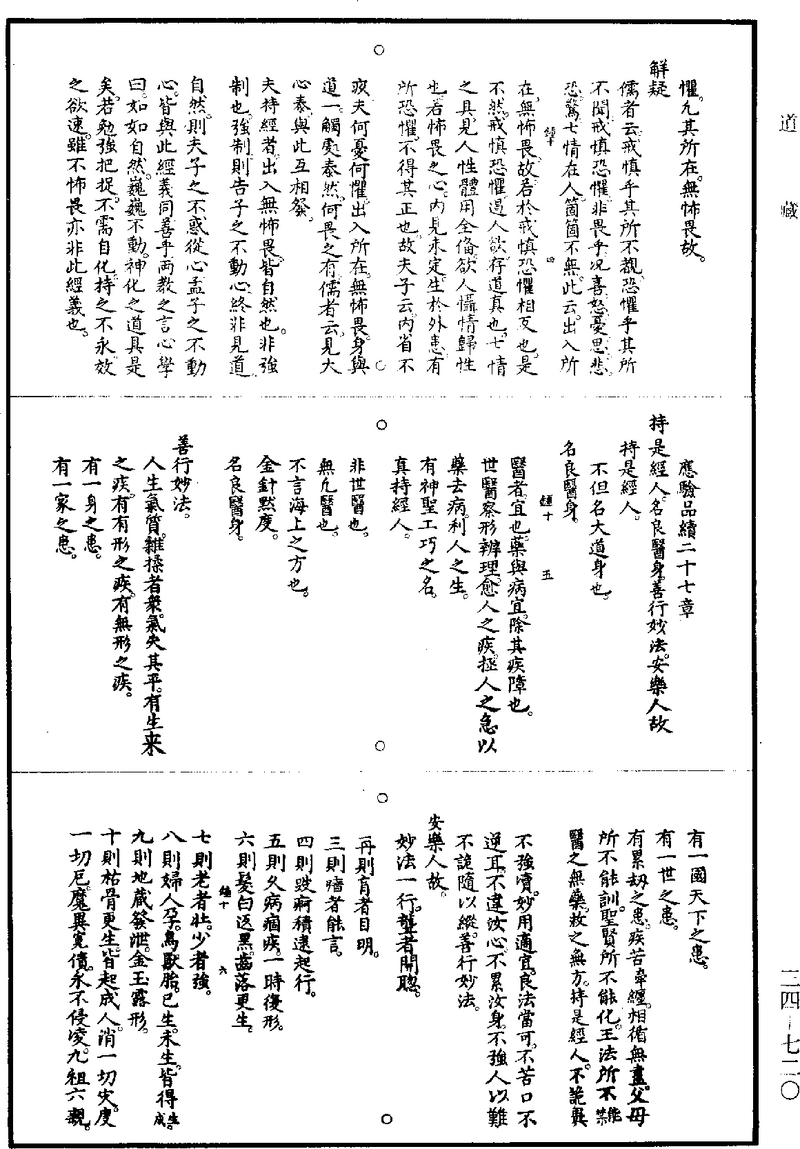 道藏
懼凡其所在。無怖畏故。
解疑
儒者云。戒慎乎其所不覩。恐懼乎其所
不聞。戒慎恐懼。非畏乎。况喜怒憂思悲
恐驚。七情在人。箇箇不無。此云出入所
在。無怖畏。故若於戒慎恐懼相反也。是
不然。戒慎恐懼。遏人欲。存道真也。七情
之具。見人性體用全俻。欲人懾情歸性
也。若怖畏之心。內見未定。生於外患。有
所恐懼。不得其正也。故夫子云。內省不
疚。夫何憂何懼。出入所在。無怖畏。身與
道一。觸處泰然。何畏之有。儒者云。見大
心泰。與此互相發。
夫持經者。出入無怖畏。皆自然也。非強
制也。強制則告子之不動心。終非見道
自然。則夫子之不惑從心。孟子之不動
心。皆與此經義同善乎。兩教之言心學
曰。如如自然。巍巍不動。神化之道具是
矣。若勉強把捉。不需自化。持之不永。效
之欲速。雖不怖畏。亦非此經義也。
應驗品續二十七章
持是經人。名良醫身。善行妙法。安樂人故
持是經人。
不但名大道身也。
名良醫身。
醫者。宜也。藥與病宜。除其疾障也。
世醫察形辨理。愈人之疾。拯人之急。以
藥去病。利人之生。
有神聖工巧之名。
真持經人。
非世醫也。
無凡醫也。
不言海上之方也。
金針點度。
名良醫身。
善行妙法。
人生氣質。雜揉者衆。氣失其平。有生來
之疾。有有形之疾。有無形之疾。
有一身之患。
有一家之患。
有一國天下之患。
有一世之患。
有累劫之患。疾苦牽纏。相循無盡。父母
所不能訓。聖賢所不能化。王法所不能禁
醫之無藥。救之無方。持是經人。不詭異
不強賣。妙用適宜。良法當可。不苦口。不
逆耳。不違汝心。不累汝身。不強人以難
不詭隨以縱。善行妙法。
安樂人故。
妙法一行。聾者開聰。
再則盲者目明。
三則瘖者能言。
四則跛痾積逮起行。
五則久病痼疾。一時復形。
六則髮白返黑。齒落更生。
七則老者壯。少者強。
八則婦人孕。鳥獸胎。已生未生。皆得生成
九則地藏發泄。金玉露形。
十則枯骨更生。皆起成人。消一切灾。度
一切厄。魔異寃債。永不侵凌。九祖六親。
三四—七二〇